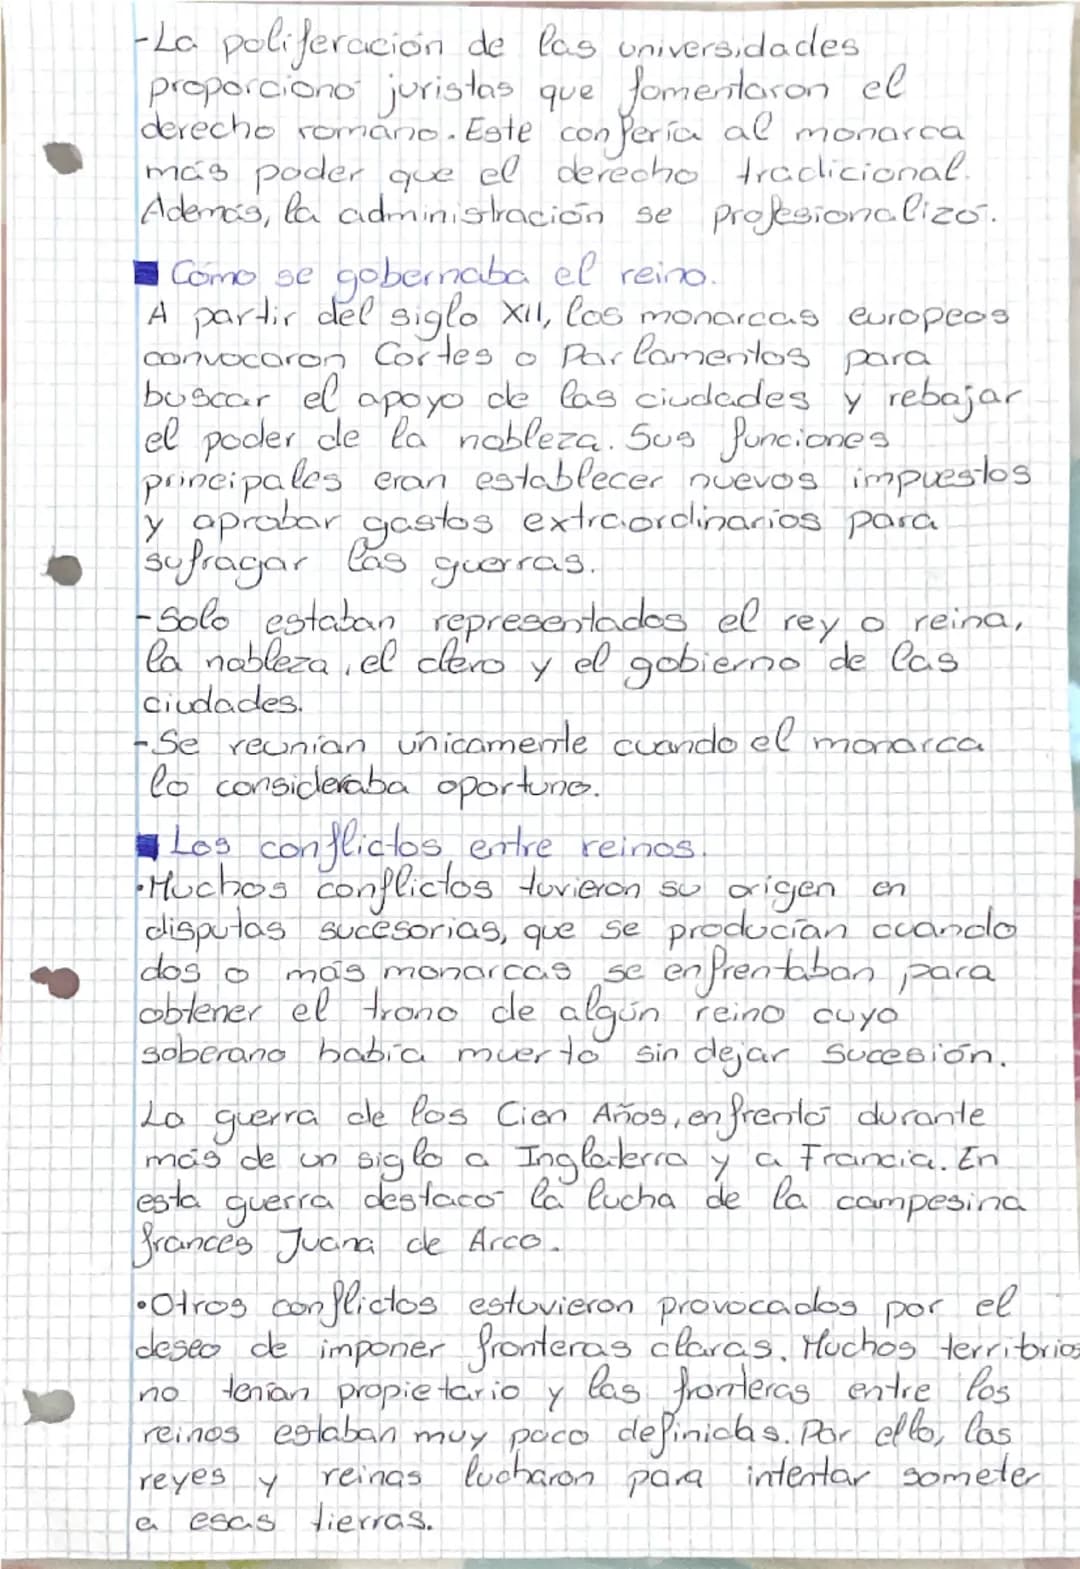 -La poliferación de las universidades
proporcionó juristas que fomentaron el
derecho romano. Este confería al monarca
más poder que el derecho tradicional.
Además, la administración se profesionalizó.
Cómo se gobernaba el reino.
A partir del siglo XII, los monarcas europeos
convocaron Cortes o Parlamentos para
buscar el apoyo de las ciudades y rebajar
el poder de la nobleza. Sus funciones
principales eran establecer nuevos impuestos
y aprobar gastos extraordinarios para
sufragar las guerras.
-Solo estaban representados el rey o reina,
la nobleza, el clero y el gobierno de las
ciudades.
-Se reunían únicamente cuando el monarca
lo consideraba oportuno.
Los conflictos entre reinos.
•Muchos conflictos tuvieron su origen en
disputas sucesorias, que se producían cuando
dos o más monarcas se enfrentaban para
obtener el trono de algún reino cuyo
soberano había muerto sin dejar sucesión.
La guerra de los Cien Años, enfrentó durante
más de un siglo a Inglaterra y a Francia. En
esta guerra destacó la lucha de la campesina
frances Juana de Arco.
•Otros conflictos estuvieron provocados por el
deseo de imponer fronteras claras. Muchos territorios
no tenían propietario y las fronteras entre los
reinos estaban muy poco definidas. Por ello, los
reyes y reinas lucharon para intentar someter
a esas tierras.